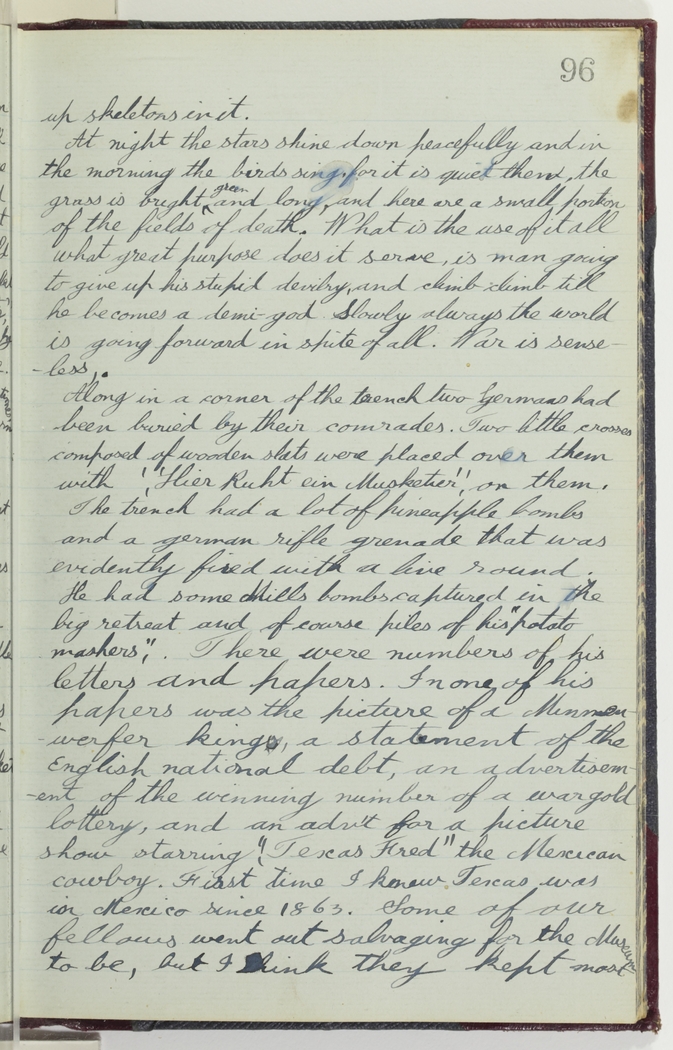 96
up skeletons in it.
At night the stars shine down peacefully and in
the morning the birds sing, for it is quiet then, the
grass is bright, green and long, and here are a small portion
of the fields of death. What is the use of it all
what great purpose does it serve, is man going
to give up his stupid devilry, and climb climb till
he becomes a demi-god Slowly always the world
is going forward in spite of all. War is sense-
-less,.
Along in a corner of the trench two Germans had
been buried by their comrades. Two little crosses
composed of wooden slats were placed over them
with "Hier Ruht ein Musketier", on them.
The trench had a lot of pineapple bombs
and a german rifle grenade that was
evidently fired with a live round.
He had some Mills bombs captured in the
big retreat and of coarse piles of his "potato
mashers",. There were numbers of his
letters and papers. In one of his
papers was the picture of a Minnen-
-werfer king, a statement of the
English national debt, an advertisem-
-ent of the winning number of a war gold
lottery, and an advt for a picture
show starring "Texas Fred" the Mexican
cowboy. First time I knew Texas was
in Mexico since 1863. Some of our
fellows went out salvaging for the Museum
to be, but I think they kept most